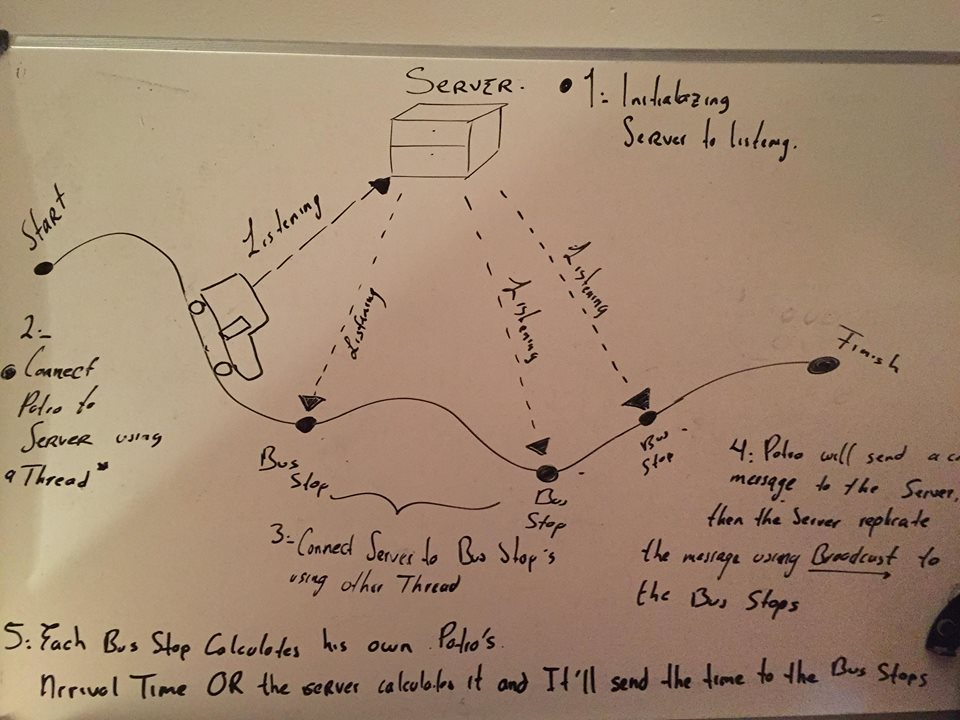 SERVER.
1: Initialazing
Server to listeng.
Start
Listening
Listening
Listening
Listening
Finish
2:-
Connect
Patio to
Server using
a Thread*
Bus
Stop
Bus
Stop
Bus
Stop
3:- Connect Server to Bus Stop's
using other Thread
4: Patio will send a
message to the Server,
then the Server replicate
the message using Broadcast to
the Bus Stops
5: Each Bus Stop Calculates his own Patio's.
Arrival Time OR the server calculates it and It'll send the time to the Bus Stops